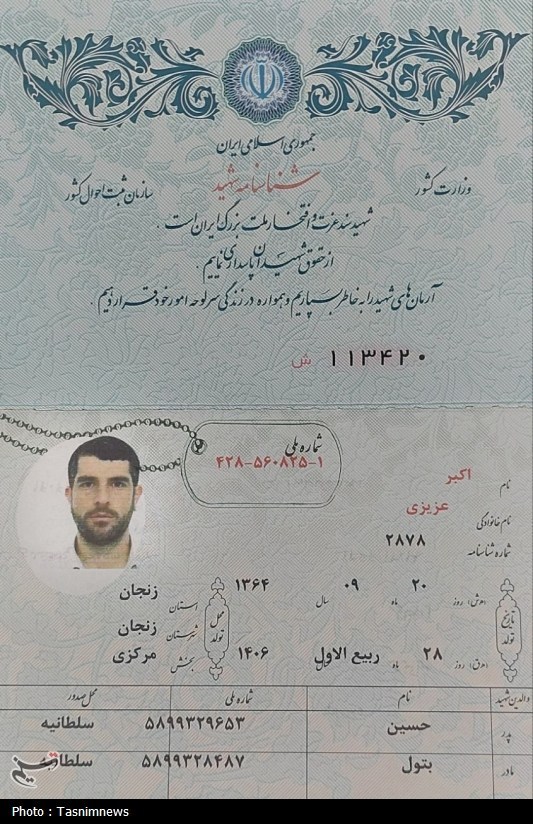 جمهوری اسلامی ایران
شناسنامه شهید
وزارت کشور
سازمان ثبت احوال کشور
شهید سند عزت و افتخار ملت بزرگ ایران است .
از حقوق شهیدان پاسداری نماییم .
آرمان‌های شهید را به خاطر بسپاریم و همواره در زندگی سرلوحه امور خود قرار دهیم .
۱۱۳۴۲۰ ش
شماره ملی
۴۲۸-۵۶۰۸۲۵-۱
نام اکبر
نام خانوادگی عزیزی
شماره شناسنامه ۲۸۷۸
تاریخ تولد
(ه‍.ش) روز ۲۰ ماه ۰۹ سال ۱۳۶۴
(ه‍.ق) روز ۲۸ ماه ربیع الاول سال ۱۴۰۶
محل تولد
استان زنجان
شهرستان زنجان
بخش مرکزی
والدین شهید نام شماره ملی محل صدور
پدر حسین ۵۸۹۹۳۲۹۶۵۳ سلطانیه
مادر بتول ۵۸۹۹۳۲۸۴۸۷
تسنیم
Photo : Tasnimnews